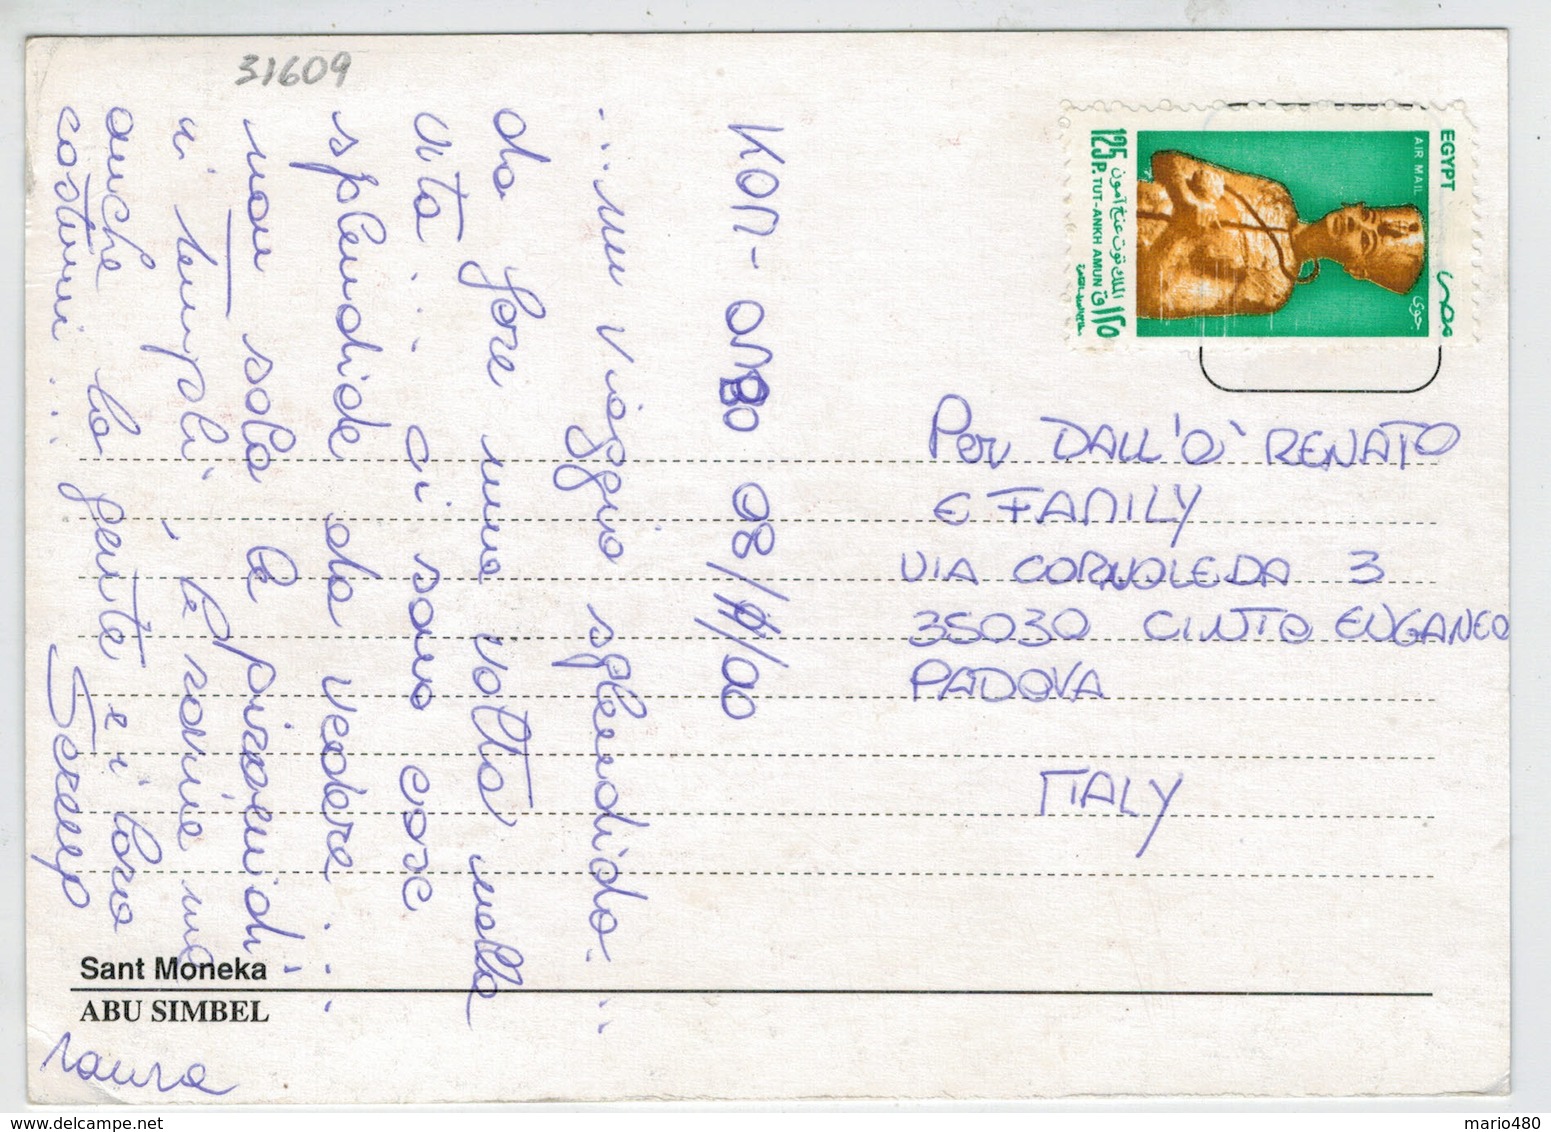 31609
KOM-OMBO 08/11/00
...un viaggio splendido...
da fare una volta nella
vita... ci sono cose
splendide da vedere...
non solo le piramidi..
i templi, le rovine ma
anche la gente e i loro
costumi...
EGYPT
AIR MAIL
مصر
جوى
الملك توت عنخ آمون
125 P. TUT-ANKH AMUN ١٢٥ق
Per DALL'O' RENATO
E FAMILY
VIA CORNOLEDA 3
35030 CINTO EUGANEO
PADOVA
ITALY
Sant Moneka
ABU SIMBEL
www.delcampe.net
mario480